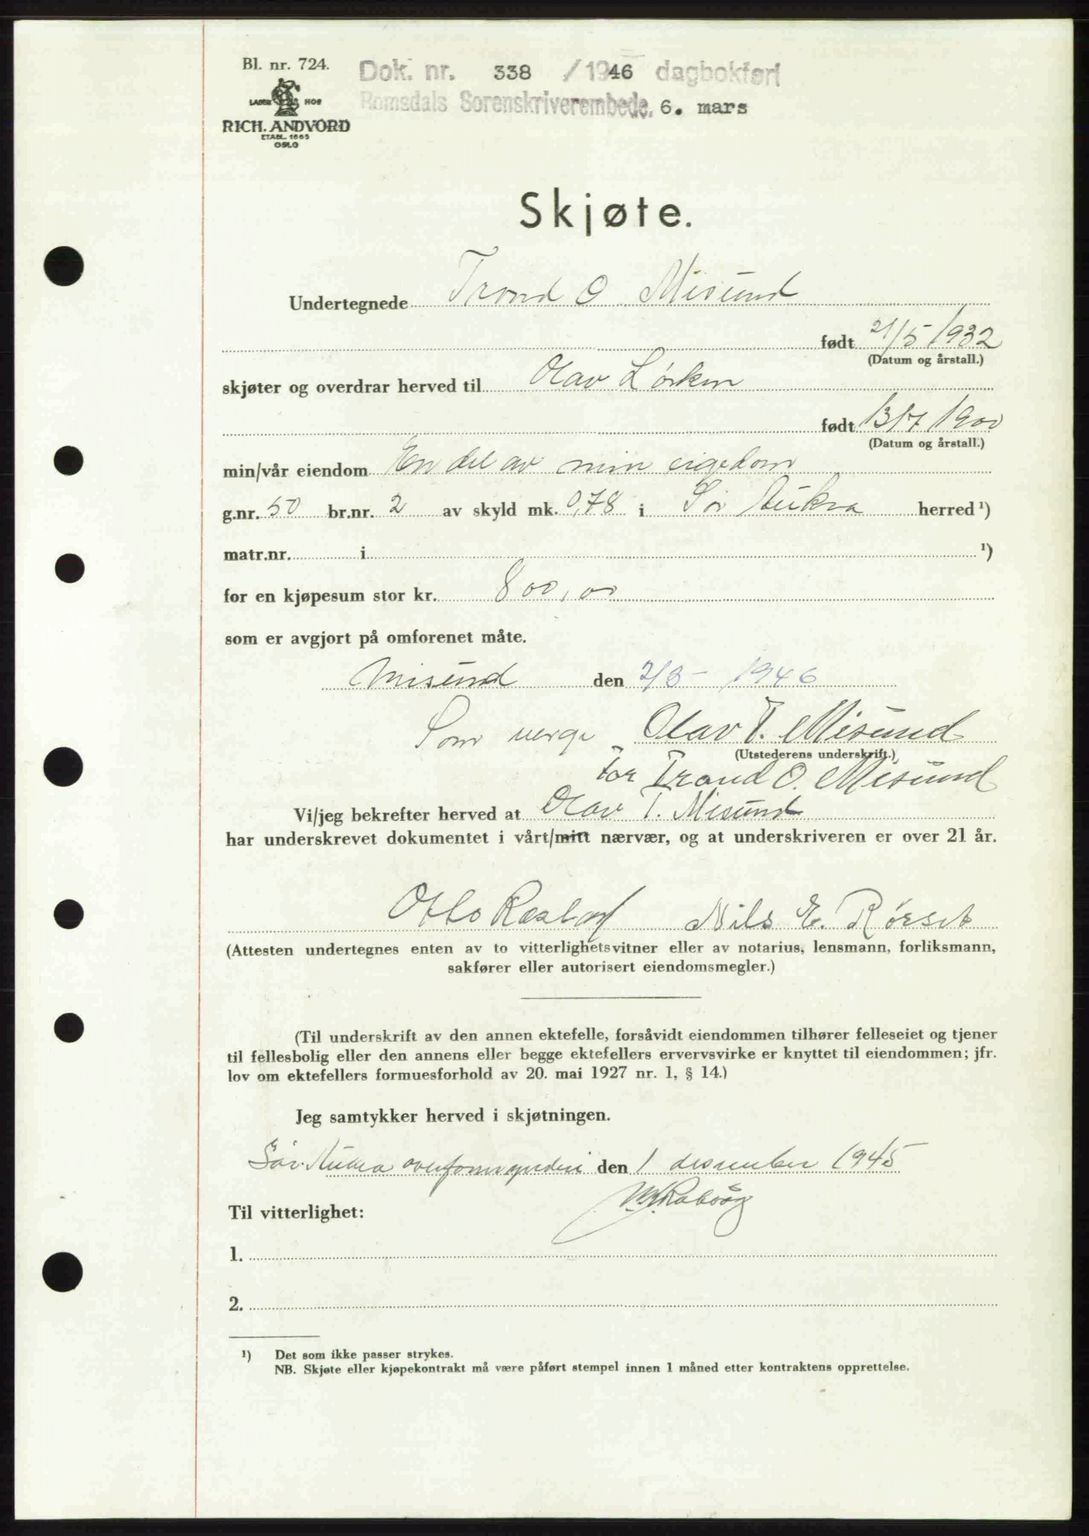 Bl. nr. 724.
Dok. nr. 338 / 1946 dagbokført
Romsdals Sorenskriverembede. 6. mars
LAGER HOS
RICH. ANDVORD
ETABL. 1865
OSLO
Skjøte.
Undertegnede Trond O. Misund
født 21/5 1932
(Datum og årstall.)
skjøter og overdrar herved til Olav Lørken
født 13/7 1900
(Datum og årstall.)
min/vår eiendom En del av min eigedom
g.nr. 50 br.nr. 2 av skyld mk. 0,78 i Sør Aukra herred ¹)
matr.nr. i ¹)
for en kjøpesum stor kr. 800,00
som er avgjort på omforenet måte.
Misund den 2/3- 1946
Som verge Olav T. Misund
(Utstederens underskrift.)
For Trond O. Misund
Vi/jeg bekrefter herved at Olav T. Misund
har underskrevet dokumentet i vårt/mitt nærvær, og at underskriveren er over 21 år.
Otto Nils E. Rørset
(Attesten undertegnes enten av to vitterlighetsvitner eller av notarius, lensmann, forliksmann,
sakfører eller autorisert eiendomsmegler.)
(Til underskrift av den annen ektefelle, forsåvidt eiendommen tilhører felleseiet og tjener
til fellesbolig eller den annens eller begge ektefellers ervervsvirke er knyttet til eiendommen; jfr.
lov om ektefellers formuesforhold av 20. mai 1927 nr. 1, § 14.)
Jeg samtykker herved i skjøtningen.
Sør-Aukra overformynderi den 1 desember 1945
Til vitterlighet:
1.
2.
¹) Det som ikke passer strykes.
NB. Skjøte eller kjøpekontrakt må være påført stempel innen 1 måned etter kontraktens opprettelse.